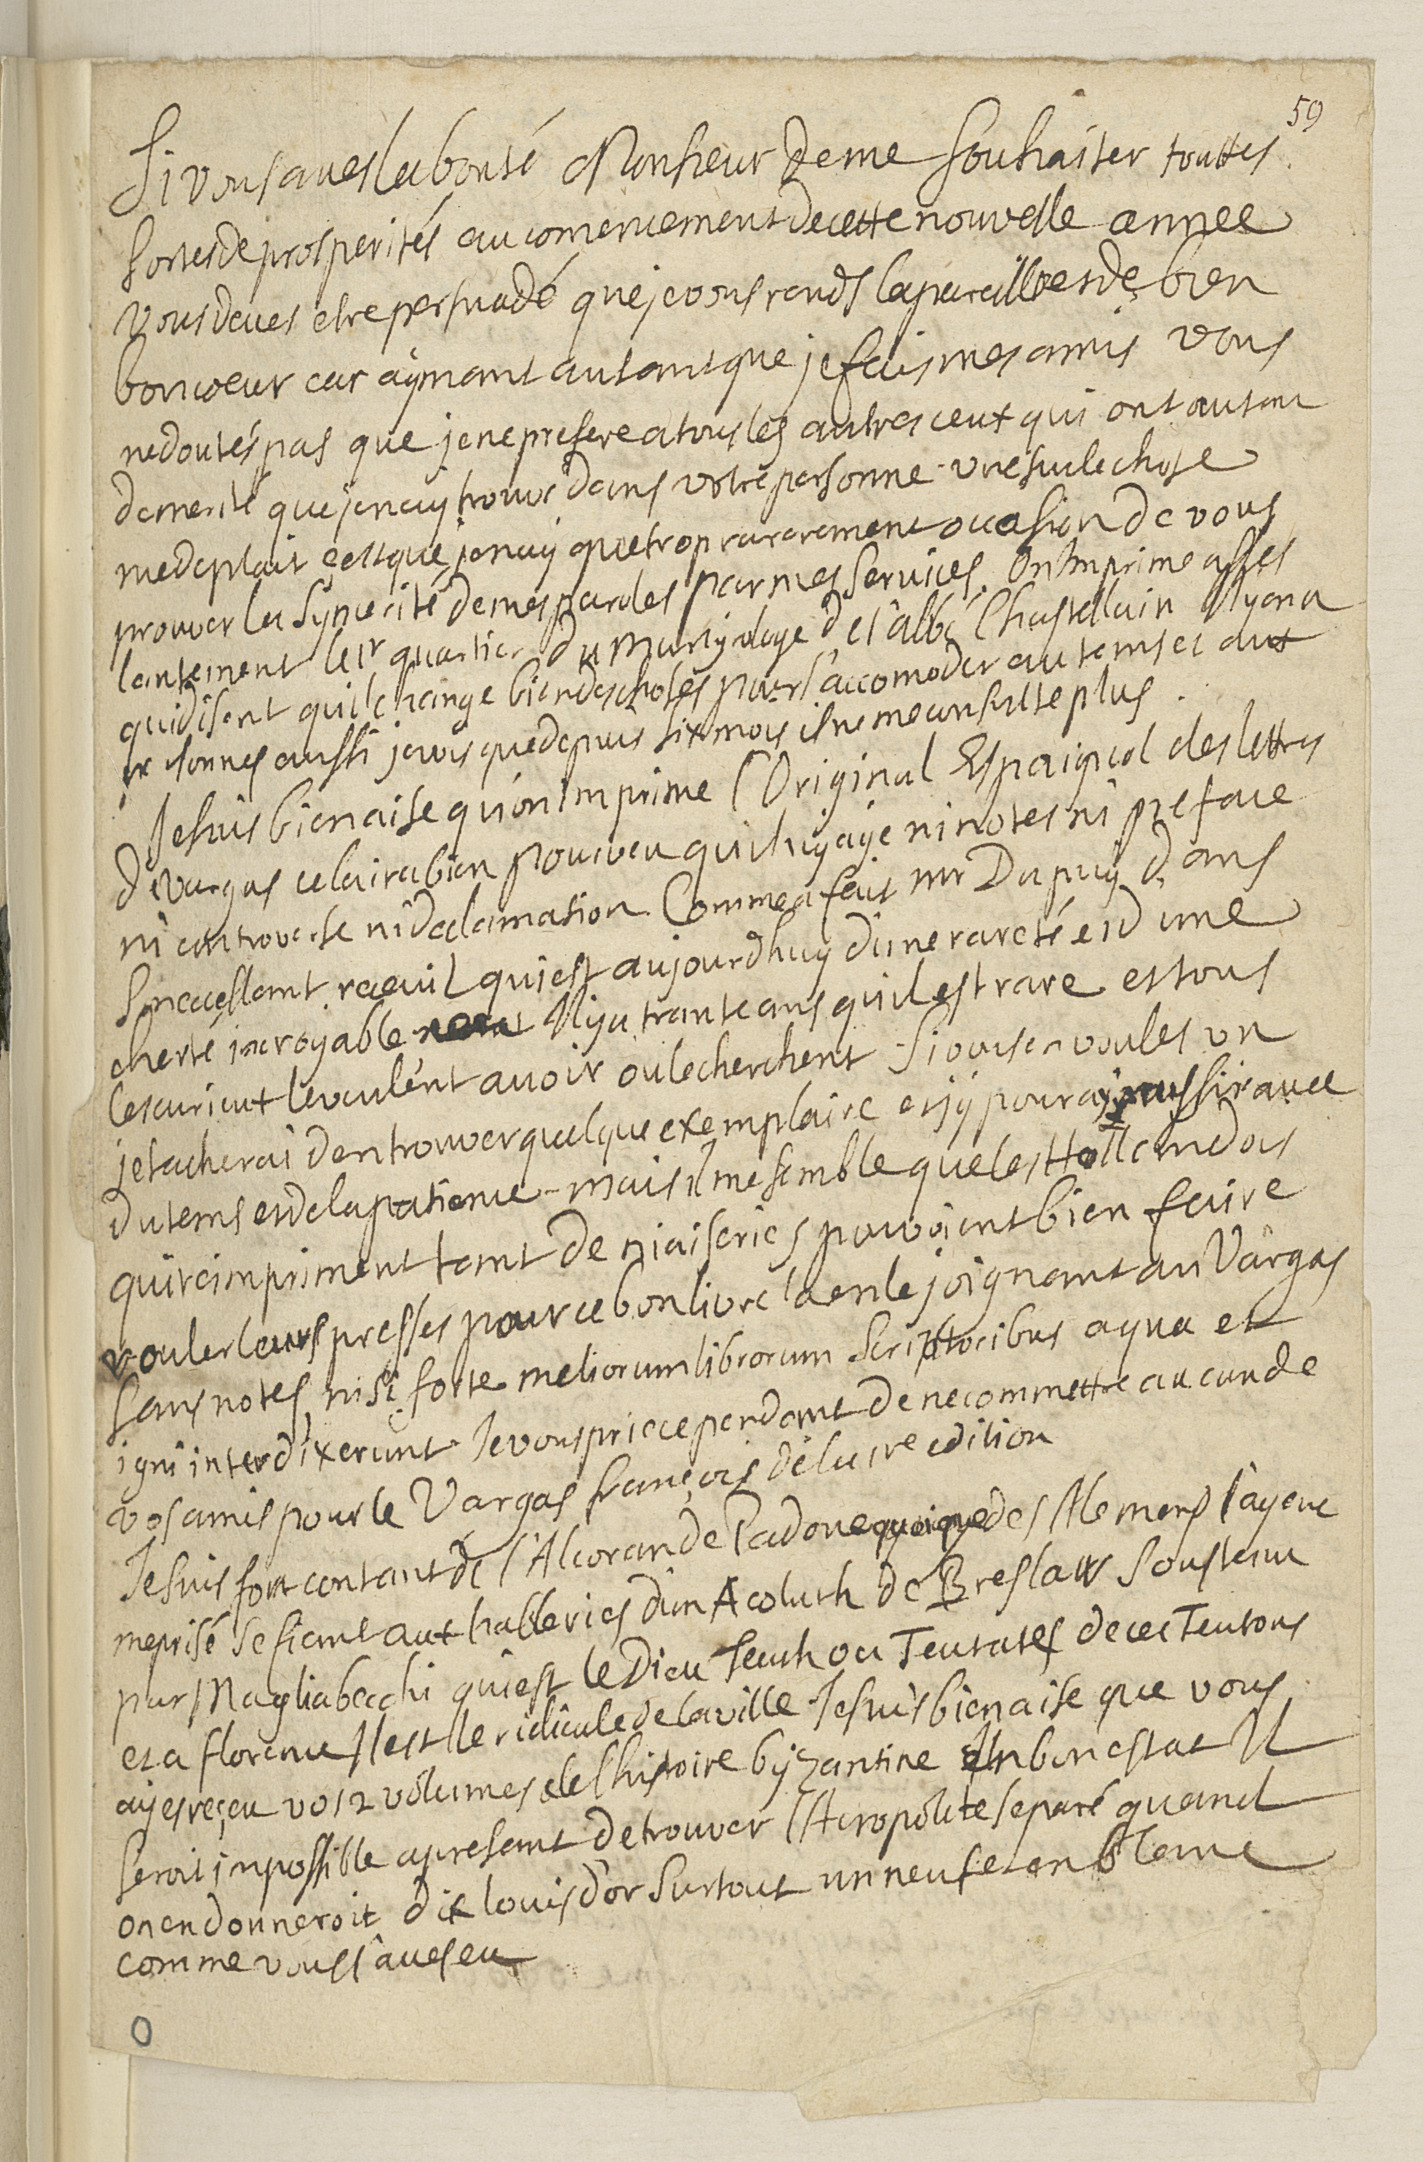 59
Si vous aves la bonté Monsieur de me souhaiter touttes
sortes de prosperités au comencement de cette nouvelle annee
vous deves etre persuadé que je vous rends la pareille et de bien
bon coeur car aÿmant autant que je fais mes amis vous
ne doutés pas que je ne prefere a tous les autres ceux qui ont autant
de merite que jen ay trouvé dans votre personne - une seule chose
me deplait cest que je nay que trop rarement occasion de vous
prouver la syncerité de mes paroles par mes services. On Imprime asses
lentement le 1r quartier du Martyrologe de l'abbé Chastellain Il y en a
qui disent quil change bien des choses pour s'accomoder au tems et aux
personnes aussi je vois que depuis six mois il ne me consulte plus.
Je suis bien aise qu'on Imprime l'Original Espaignol des lettres
de Vargas cela ira bien pourveu quil ny aye ni notes ni preface
ni controverse ni declamation. Comme a fait mr Dupuy dans
son excellant recueil qui est aujourdhuy d'une rareté et d'une
cherté incroyable Il y a trante ans quil est rare et tous
les curieux le veulent avoir ou le cherchent. Si vous en voules un
je tacherai den trouver quelque exemplaire et jy pouray reussir avec
du tems et de la patience - mais il me semble que les Hollandois
qui reimpriment tant de niaiseries pouroient bien faire
rouler leurs presses pour ce bon livre la en le joignant au Vargas
sans notes, nisi forte meliorum librorum scriptoribus aqua et
igni interdixerunt. Je vous prie cependant de ne commettre aucun de
vos amis pour le Vargas françois de la 1re edition
Je suis fort contant de l'Alcoran de Padoue quoique des Alemans l'ayent
meprisé se fiant aux hableries d'un Acoluth de Breslaw soustenu
par Magliabecchi qui est le Dieu Teuth ou Teutates de ces Teutons
et a florence Il est le ridicule de la ville. Je suis bien aise que vous
ayes reçeu vos 2 volumes de l'histoire byzantine En bon estat Il
seroit impossible apresent de trouver l'Acropolite separé quand
on en donneroit dix louis d'or surtout un neuf et en blanc
comme vous l'aves eu